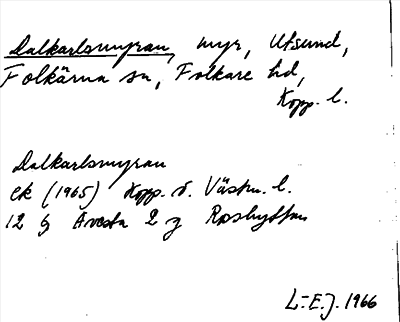 Dalkarlsmyran, myr, Utsund,
Folkärna sn, Folkare hd,
Kopp. l.
Dalkarlsmyran
ek (1965) Kopp. o. Västm. l.
12 G Avesta 2 g Rosshyttan
L-E.J. 1966